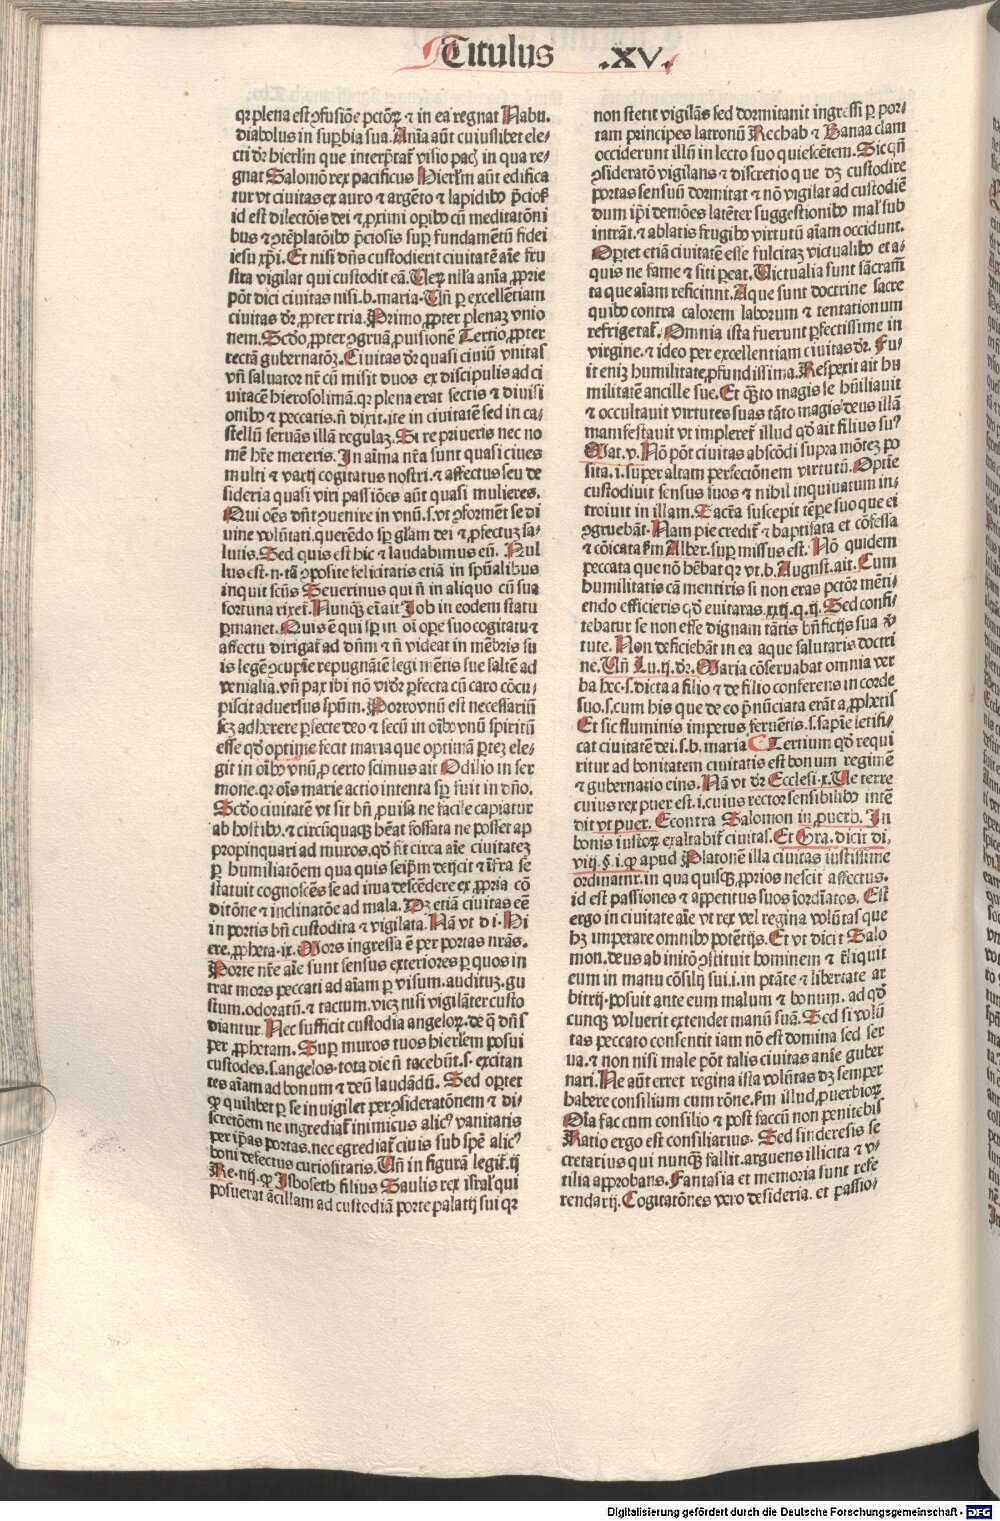 Titulus .XV.
qꝛ plena est ꝯfusiōe pctōꝝ ⁊ in ea regnat Nabu.
diabolus in suꝑbia sua. Aīa aūt cuiuslibet ele-
cti dꝛ hierlm̄ que interp̄tat̉ visio pac̄ in qua re-
gnat Salomō rex pacificus Hierlm̄ aūt edifica
tur vt ciuitas ex auro ⁊ argēto ⁊ lapidibꝰ p̄ciosꝭ
id est dilectōis dei ⁊ ꝓximi oꝑibꝰ cū meditatōni
bus ⁊ ꝯtēplatōibꝰ p̄ciosis suꝑ fundamētū fidei
iesu xp̄i. Et nisi dn̄s custodierit ciuitatē aīe fru
stra vigilat qui custodit eā. Uerꝫ nlla anīa ꝓprie
pōt dici ciuitas nisi .b. maria. Un̄ ꝑ excellētiam
ciuitas dꝛ ꝓpter tria. Primo ꝓpter plenaꝫ vnio
nem. Scd̄o ꝓpter ꝯgruā ꝓuisionē Tertio ꝓpter
rectā gubernatōꝫ. Ciuitas dꝛ quasi ciuiū vnitas
vn̄ saluator nr̄ cū misit duos ex discipulis ad ci
uitacē hierosolimā. qꝛ plena erat sectis ⁊ diuisi
onibꝰ ⁊ peccatis. n̄ dixit. ite in ciuitatē sed in ca-
stellū seruās illā regulaꝫ. Si re priueris nec no
mē hr̄e mereris. In aīma nr̄a sunt quasi ciues
multi ⁊ varij cogitatus nostri. ⁊ affectus seu de
sideria quasi viri passiōes aūt quasi mulieres.
Qui oēs dn̄t ꝯuenire in vnū. s. vt ꝯformēt se di
uine volūtati. querēdo sꝑ gl̄am dei ⁊ ꝓfectuꝫ sa-
lutis. Sed quis est hic ⁊ laudabimus eū. Nul
lus est. n. tā ꝯposite felicitatis etiā in spūalibus
inquit scūs Seuerinus qui n̄ in aliquo cū sua
fortuna rixet̉. Nunqꝫ em̄ ait Iob in eodem statu
ꝑmanet. Quis ē qui sꝑ in oī oꝑe suo cogitatu ⁊
affectu dirigat̉ ad dn̄m ⁊ n̄ videat in mēbris su
is legē ꝯcupīe repugnātē legi mētis sue saltē ad
venialia. vn̄ pax ibi nō vr̄dꝛ ꝑfecta cū caro cōcu-
piscit aduersus spūm. Porro vnū est necessariū
scꝫ adherere ꝑfecte deo ⁊ secū in oībꝰ vnū spiritū
esse qd̄ optime fecit maria que optimā ꝑteꝫ ele-
git in oībꝰ vnū. ꝓ certo scimus ait Odilio in ser
mone. qꝛ oīs marie actio intenta sꝑ fuit in dn̄o.
Scd̄o ciuitatē vt sit bn̄ ꝓuisa ne facile capiatur
ab hostibꝰ. ⁊ circūquaqꝫ hēat fossata ne possēt ap
propinquari ad muros. qd̄ fit circa aīe ciuitateꝫ
ꝑ humiliatōem qua quis seip̄m deijcit ⁊ īfra se
statuit cognoscēs se ad īma descēdere ex ꝓpria cō
ditōne ⁊ inclinatōe ad mala. Dꝫ etiā ciuitas eē
in portis bn̄ custodita ⁊ vigilata. Nā vt d i. Hi
ere. ꝓpheta. ix. Mors ingressa ē per portas nr̄as.
Porte nr̄e aīe sunt sensus exteriores ꝑ quos in
trat mors peccati ad aīam ꝑ visum. audituꝫ. gu
stum. odoratū. ⁊ tactum. vicꝫ nisi vigilāter custo
diantur Nec sufficit custodia angeloꝝ. de q̄ dn̄s
per ꝓphetam. Suꝑ muros tuos hierlem posui
custodes. s. angelos. tota die n̄ tacebūt. s. excitan
tes aīam ad bonum ⁊ deū laudādū. Sed oꝑtet
qꝙ quilibet ꝑ se inuigilet per ꝯsideratōnem ⁊ di-
scretōem ne ingrediat̉ inimicus alicꝰ vanitatis
per ip̄as portas. nec egrediat̉ ciuis sub spē alicꝰ
boni defectus curiositatis. Un̄ in figurā legit̉. ij
Re. iiij. ꝙ Isboseth filius Saulis rex isrl̄ qui
posuerat ācillam ad custodiā porte palatij sui qꝛ
non stetit vigilās sed dormitanit ingressi ꝑ por-
tam principes latronū Rechab ⁊ Banaa clam
occiderunt illū in lecto suo quiescētem. Sic qn̄
ꝯsideratō vigilans ⁊ discretio que dꝫ custodire
portas sensuū dormitat ⁊ nō vigilat ad custodiē
dum ip̄i demōes latēter suggestionibꝰ mal̄ sub
intrāt. ⁊ ablatis frugibꝰ virtutū aīam occidunt.
Oꝑtet etiā ciuitatē esse fulcitaꝫ victualibꝰ et a-
quis ne fame ⁊ siti ꝑeat. Uictualia sunt sācram̄
ta que aīam reficiunt. Aque sunt doctrine sacre
quibꝰ contra calorem laborum ⁊ tentationum
refrigerat̉. Omnia ista fuerunt ꝑfectissime in
virgine. ⁊ ideo per excellentiam ciuitas dꝛ. Fu-
it eniꝫ humilitate ꝓfundissima. Respexit ait hu
militatē ancille sue. Et qꝫto magis se hūiliauit
⁊ occultauit virtutes suas tāto magis deus illā
manifestauit vt impleret̉ illud qd̄ ait filius suꝰ
Mat. v. Nō pōt ciuitas abscōdi supra mōteꝫ po
sita. i. super altam perfectiōnem virtutū. Optīe
custodiuit sensus suos ⁊ nihil inquiuatum in-
troiuit in illam. Sacra suscepit tēpe suo que ei
ꝯgruebāt. Nam pie credit̉ ⁊ baptisata et cōfessa
⁊ cōicata ẜm Alber. suꝑ missus est. Nō quidem
peccata que nō hēbat qꝛ vt .b. August. ait. Cum
humilitatis cā mentiris si non eras pctōꝛ mēti-
endo efficieris qd̄ euitaras. xxij. q. ij. Sed confi-
tebatur se non esse dignam tātis bn̄ficijs sua v̄
tute. Non deficiebāt in ea aque salutaris doctri
ne. Un̄ Lu. ij. dꝛ. Maria cōseruabat omnia ver
ba hec. s. dicta a filio ⁊ de filio conferens in corde
suo. s. cum his que de eo p̄nūciata erāt a ꝓphetis
Et sic fluminis impetus feruētis. s. sapīe letifi-
cat ciuitatē dei. s. b. maria Tertium qd̄ requi
ritur ad bonitatem ciuitatis est bonum regimē
⁊ gubernatio eius. Nā vt dꝛ Ecclesi. x. Ue terre
cuius rex puer est. i. cuius rector sensibilibꝰ intē
dit vt puer. Econtra Salomon in ꝓuerb. In
bonis iustoꝝ exaltabit̉ ciuitas. Et Gra. dicit di.
viij. §. i. ꝙ apud Platonē illa ciuitas iustissime
ordinatur. in qua quisqꝫ ꝓprios nescit affectus.
id est passiones ⁊ appetitus suos īordīatos. Est
ergo in ciuitate aīe vt rex vel regina volūtas que
hꝫ imperare omnibꝰ potētijs. Et vt dicit Salo
mon. deus ab initō ꝯstituit hominem ⁊ r̄liquit
eum in manu cōsilij sui. i. in ptāte ⁊ libertate ar
bitrij. posuit ante eum malum ⁊ bonum. ad qd̄
cunqꝫ voluerit extendet manū suā. Sed si volū
tas peccato consentit iam nō est domina sed ser
ua. ⁊ non nisi male pōt talis ciuitas anīe guber
nari. Ne aūt erret regina ista volūtas dꝫ semper
habere consilium cum rōne. ẜm illud ꝓuerbioꝝ
Oīa fac cum consilio ⁊ post factū non penitebis
Ratio ergo est consiliarius. Sed sinderesis se
cretarius qui nunqꝫ fallit. arguens illicita ⁊ v-
tilia approbans. Fantasia et memoria sunt refe
rendarij. Cogitatōnes vero desideria. et passio-
Digitalisierung gefördert durch die Deutsche Forschungsgemeinschaft - DFG